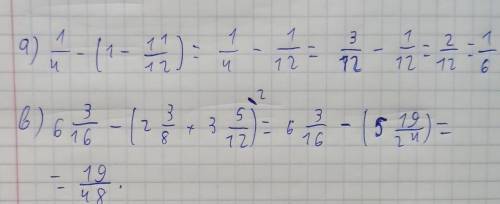 а) 1/4 - (1 - 11/12) = 1/4 - 1/12 = 3/12 - 1/12 = 2/12 = 1/6
в) 6 3/16 - (2 3/8 + 3 5/12)² = 6 3/16 - (5 19/24) =
= 19/48.